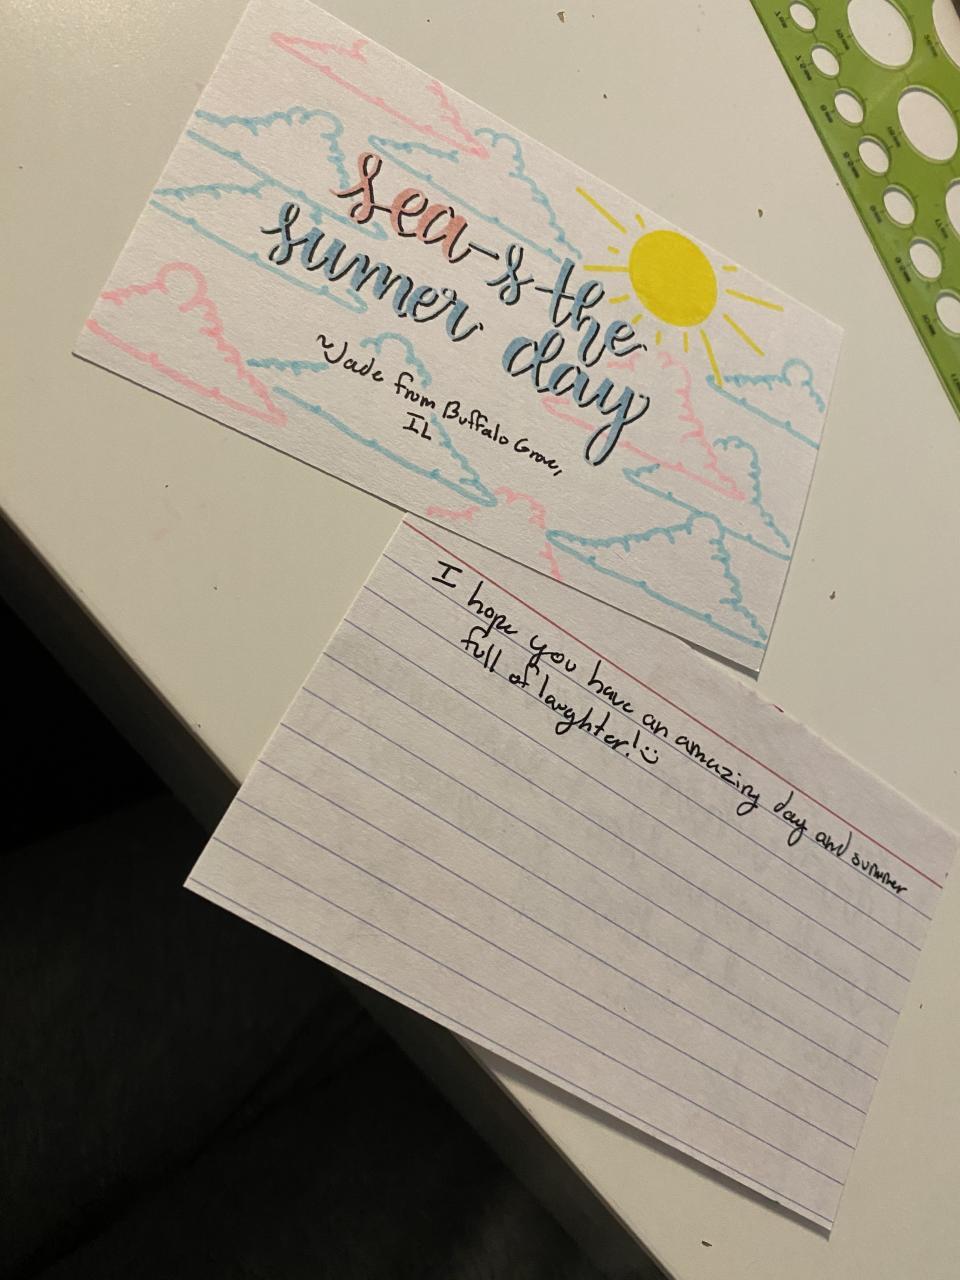 sea-s the
sumer day
~Jade from Buffalo Grove,
IL
I hope you have an amazing day and summer
full of laughter! :)